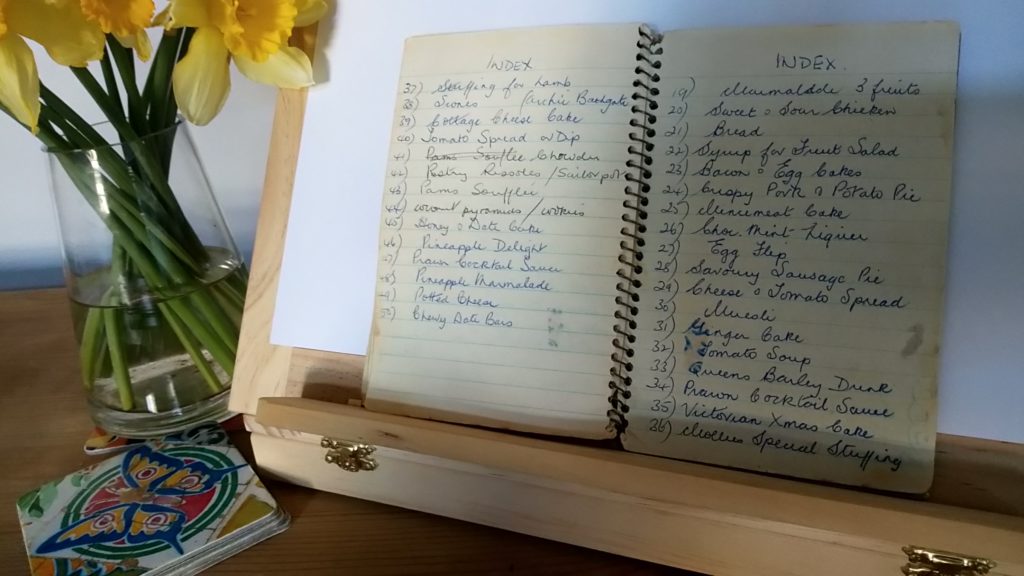 INDEX
37) Stuffing for Lamb
38) Scones /Archie Bathgate
39) Cottage Cheese Cake
40) Tomato Spread or Dip
41) Pams Souffle Chowder
42) Pastry Rissoles /
43) Pams Soufflé
44) coconut pyramids / cookies
45) Honey & Date Cake
46) Pineapple Delight
47) Prawn Cocktail Sauce
48) Pineapple Marmalade
49) Potted Cheese
50) Chewy Date Bars
INDEX.
19) Marmalade 3 fruits
20) Sweet & Sour Chicken
21) Bread
22) Syrup for Fruit Salad
23) Bacon & Egg Cakes
24) Crispy Pork & Potato Pie
25) Mincemeat Cake
26) Choc. Mint Liquer
27) Egg Flip
28) Savoury Sausage Pie
29) Cheese & Tomato Spread
30) Muesli
31) Ginger Cake
32) Tomato Soup
33) Queens Barley Drink
34) Prawn Cocktail Sauce
35) Victorian Xmas Cake
36) Special Stuffing